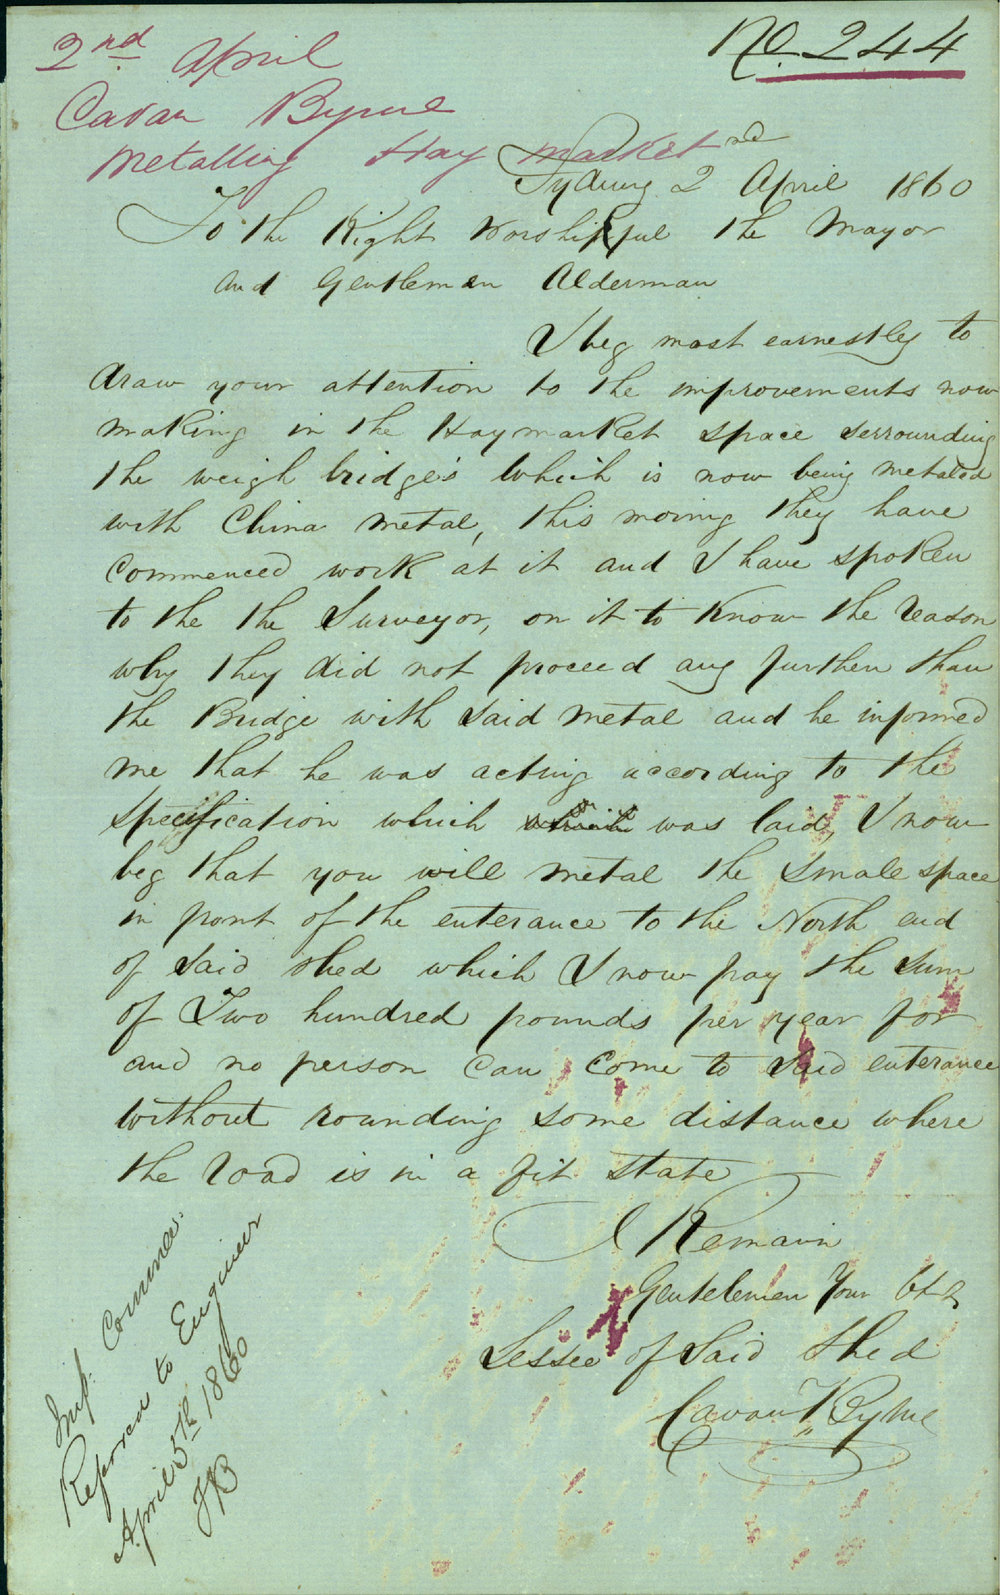 2nd April
No. 244
Cavan Byrne
Metalling Hay Market
Sydney 2nd April 1860
To the Right Worshipful the Mayor
and Gentlemen Alderman
I beg most earnestly to
draw your attention to the improvements now
making in the Haymarket space serrounding
the weigh bridge's which is now being metaled
with China metal, this moring they have
commenced work at it and I have spoken
to the the Surveyor, on it to know the reason
why they did not proceed any further than
the Bridge with said metal and he informed
me that he was acting according to the
specification which was laid, I now
beg that you will metal the small space
in front of the enterance to the North end
of said shed which I now pay the sum
of Two hundred pounds per year for
and no person can come to said enterance
without rounding some distance where
the road is in a fit state
I Remain
Gentelemen Your
Lessee of Said Shed
Cavan Byrne
Imp. Commee.
Referred to Engineer
April 5th 1860